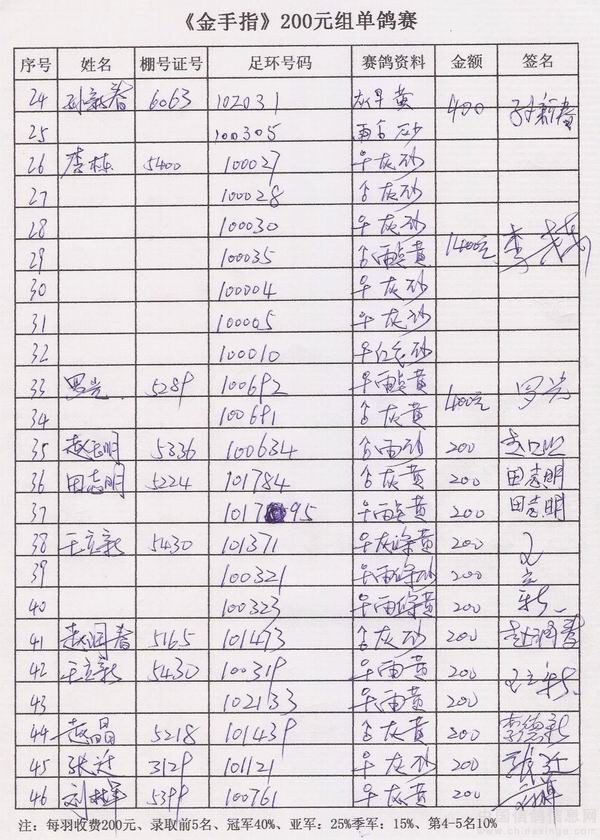 《金手指》200元组单鸽赛
序号 姓名 棚号证号 足环号码 赛鸽资料 金额 签名
24 孙新春 6063 102031 灰早黄 400 孙新春
25 100305 雨合砂
26 李栋 5400 100027 早灰砂
27 100028 合灰砂
28 100030 早灰砂
29 100035 合雨黄 1400元 李栋
30 100004 早灰砂
31 100005 早灰砂
32 100010 早红砂
33 罗光 5289 100692 早雨黄
34 100691 合灰黄 400元 罗光
35 赵明 5336 100634 合雨砂 200
36 田志明 5224 101784 合灰黄 200 田志明
37 1017 95 早雨黄 200 田志明
38 王立新 5430 101371 早灰条黄 200 王
39 100321 早雨条砂 200 立
40 100323 早雨条黄 200 新
41 赵润春 5165 101473 合灰砂 200 赵润春
42 王立新 5430 100319 早雨黄 200 王立新
43 102133 早雨黄 200
44 赵晶 5218 101439 合灰黄 200
45 张 3129 101121 早灰砂 200 张
46 刘 军 5399 100761 合灰黄 200
注：每羽收费200元、录取前5名、冠军40%、亚军：25%季军：15%、第4-5名10%
中国信鸽信息网
www.chinaxinge.com